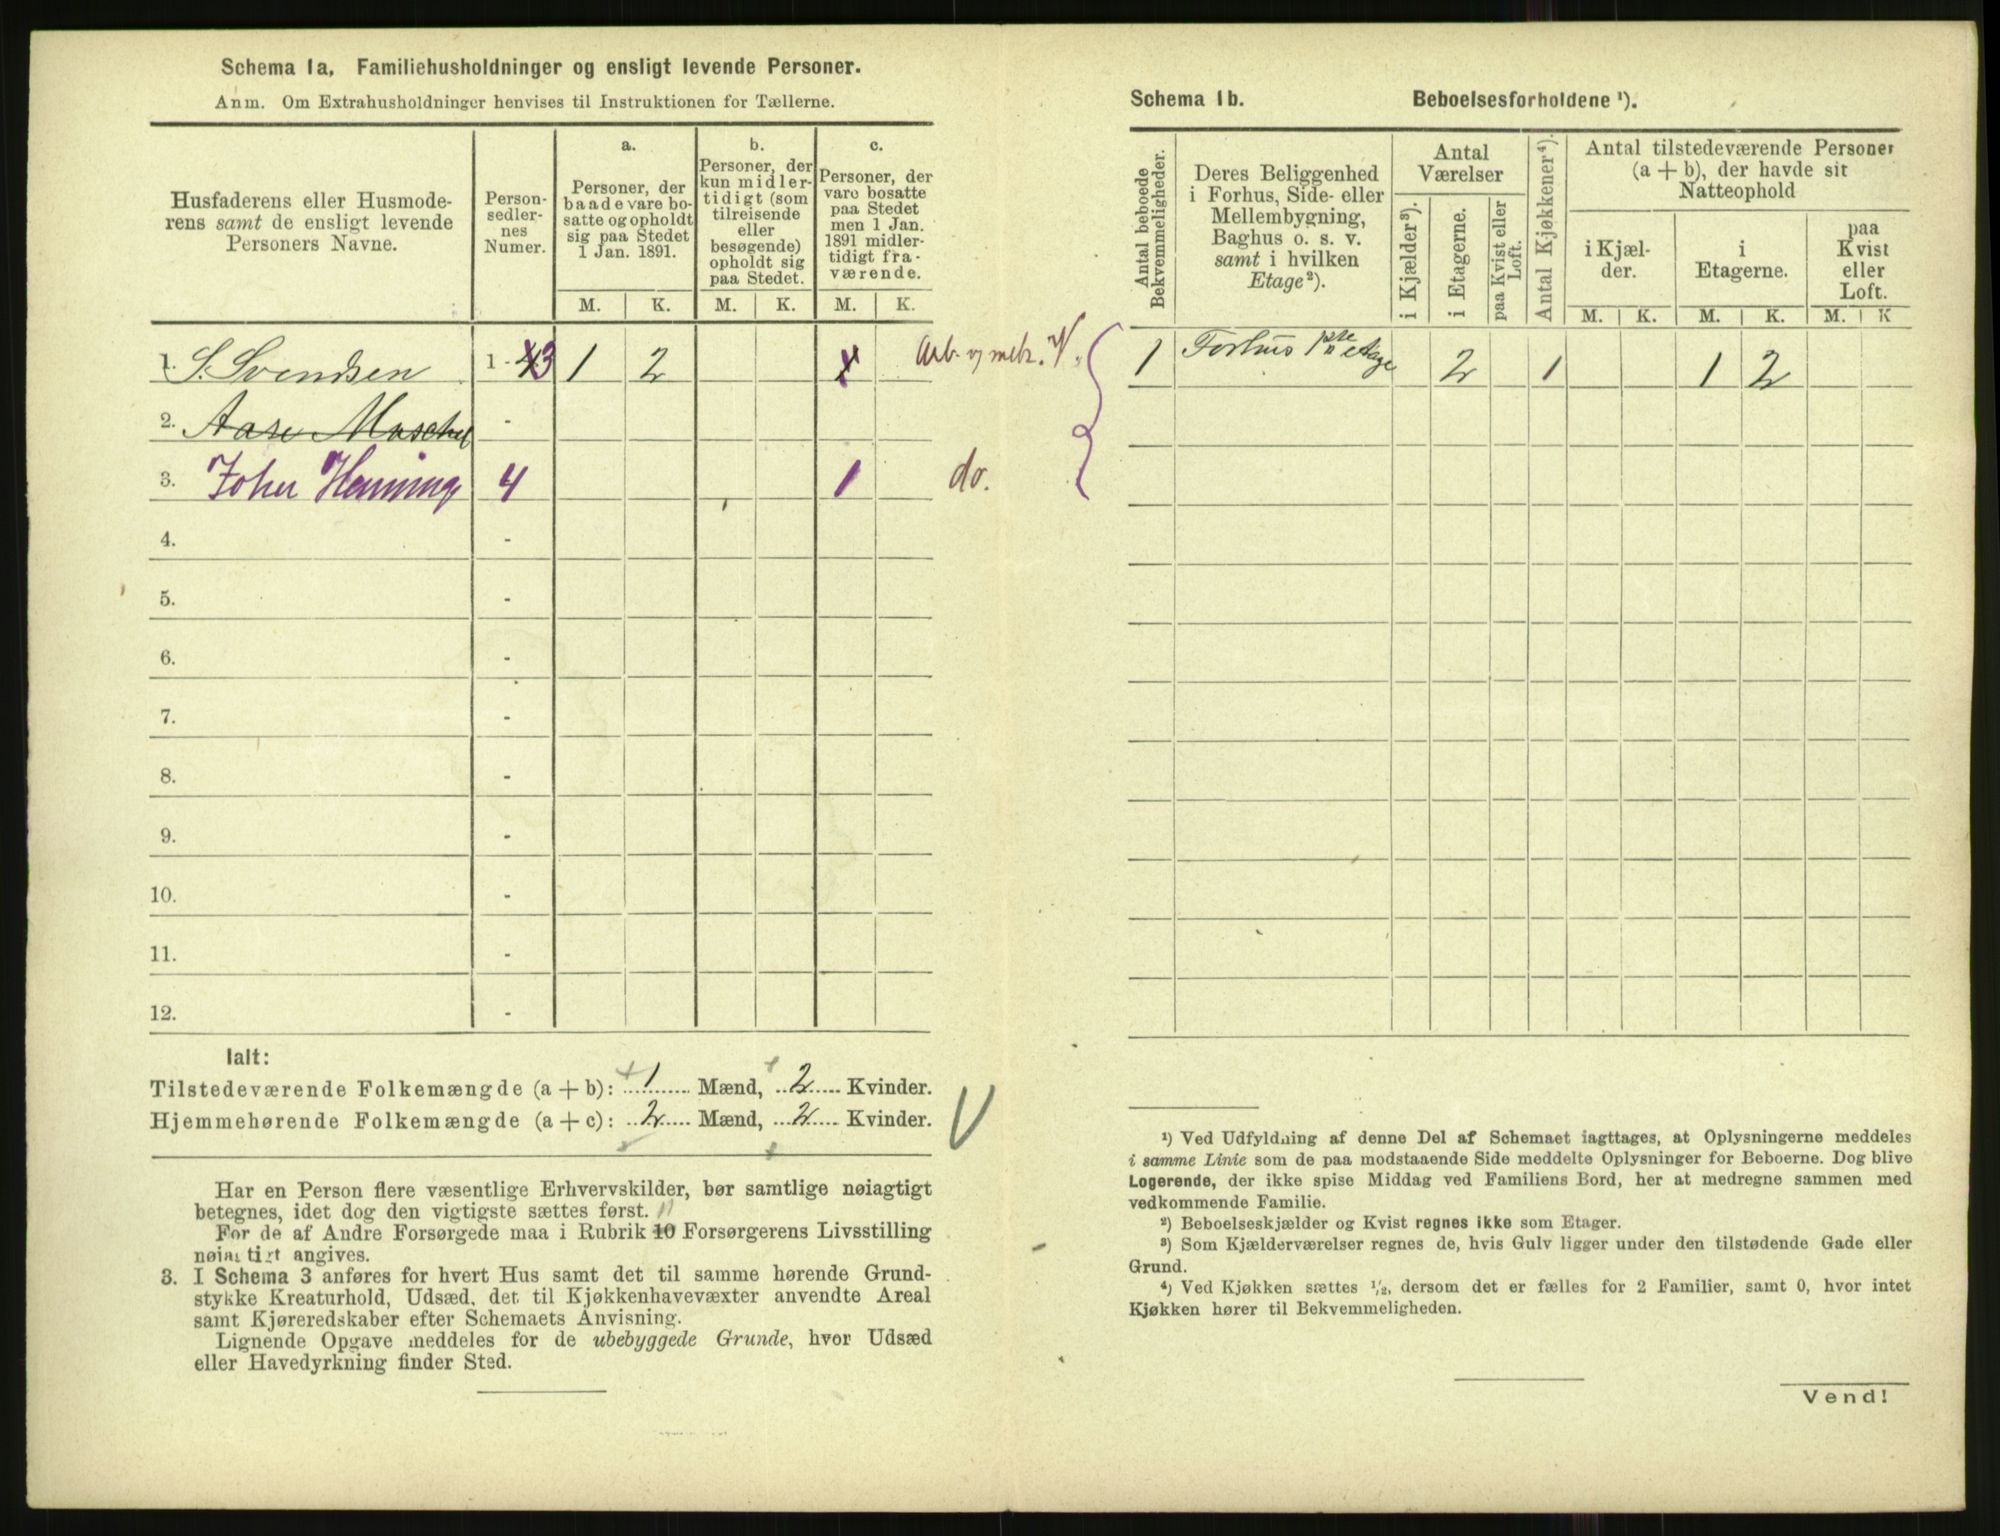 Schema 1a. Familiehusholdninger og ensligt levende Personer.
Anm. Om Extrahusholdninger henvises til Instruktionen for Tællerne.
Husfaderens eller Husmode-
rens samt de ensligt levende
Personers Navne.
Person-
sedler-
nes
Numer.
a.
Personer, der
baade vare bo-
satte og opholdt
sig paa Stedet
1 Jan. 1891.
b.
Personer, der
kun midler-
tidigt (som
tilreisende
eller
besøgende)
opholdt sig
paa Stedet.
c.
Personer, der
vare bosatte
paa Stedet
men 1 Jan.
1891 midler-
tidigt fra-
værende.
M. K. M. K. M. K.
1. S. Svendsen 1 - 43 1 2 1
2. Aase -
3. Henning 4 1 do.
4. -
5. -
6. -
7. -
8. -
9. -
10. -
11. -
12. -
Ialt:
Tilstedeværende Folkemængde (a + b): 1 Mænd, 2 Kvinder.
Hjemmehørende Folkemængde (a + c): 2 Mænd, 2 Kvinder.
Har en Person flere væsentlige Erhvervskilder, bør samtlige nøiagtigt
betegnes, idet dog den vigtigste sættes først. 11
For de af Andre Forsørgede maa i Rubrik 10 Forsørgerens Livsstilling
nøiagtigt angives.
3. I Schema 3 anføres for hvert Hus samt det til samme hørende Grund-
stykke Kreaturhold, Udsæd, det til Kjøkkenhavevæxter anvendte Areal
samt Kjøreredskaber efter Schemaets Anvisning.
Lignende Opgave meddeles for de ubebyggede Grunde, hvor Udsæd
eller Havedyrkning finder Sted.
Schema 1b. Beboelsesforholdene ¹).
Antal beboede
Bekvemmeligheder.
Deres Beliggenhed
i Forhus, Side- eller
Mellembygning,
Baghus o. s. v.
samt i hvilken
Etage²).
Antal
Værelser
i Kjælder³).
i Etagerne.
paa Kvist eller
Loft.
Antal Kjøkkener⁴).
Antal tilstedeværende Personer
(a + b), der havde sit
Natteophold
i Kjæl-
der.
i
Etagerne.
paa
Kvist
eller
Loft.
M. K. M. K. M. K
1 Forhus 1ste etage 2 1 1 2
¹) Ved Udfyldning af denne Del af Schemaet iagttages, at Oplysningerne meddeles
i samme Linie som de paa modstaaende Side meddelte Oplysninger for Beboerne. Dog blive
Logerende, der ikke spise Middag ved Familiens Bord, her at medregne sammen med
vedkommende Familie.
²) Beboelseskjælder og Kvist regnes ikke som Etager.
³) Som Kjælderværelser regnes de, hvis Gulv ligger under den tilstødende Gade eller
Grund.
⁴) Ved Kjøkken sættes ½, dersom det er fælles for 2 Familier, samt 0, hvor intet
Kjøkken hører til Bekvemmeligheden.
Vend!